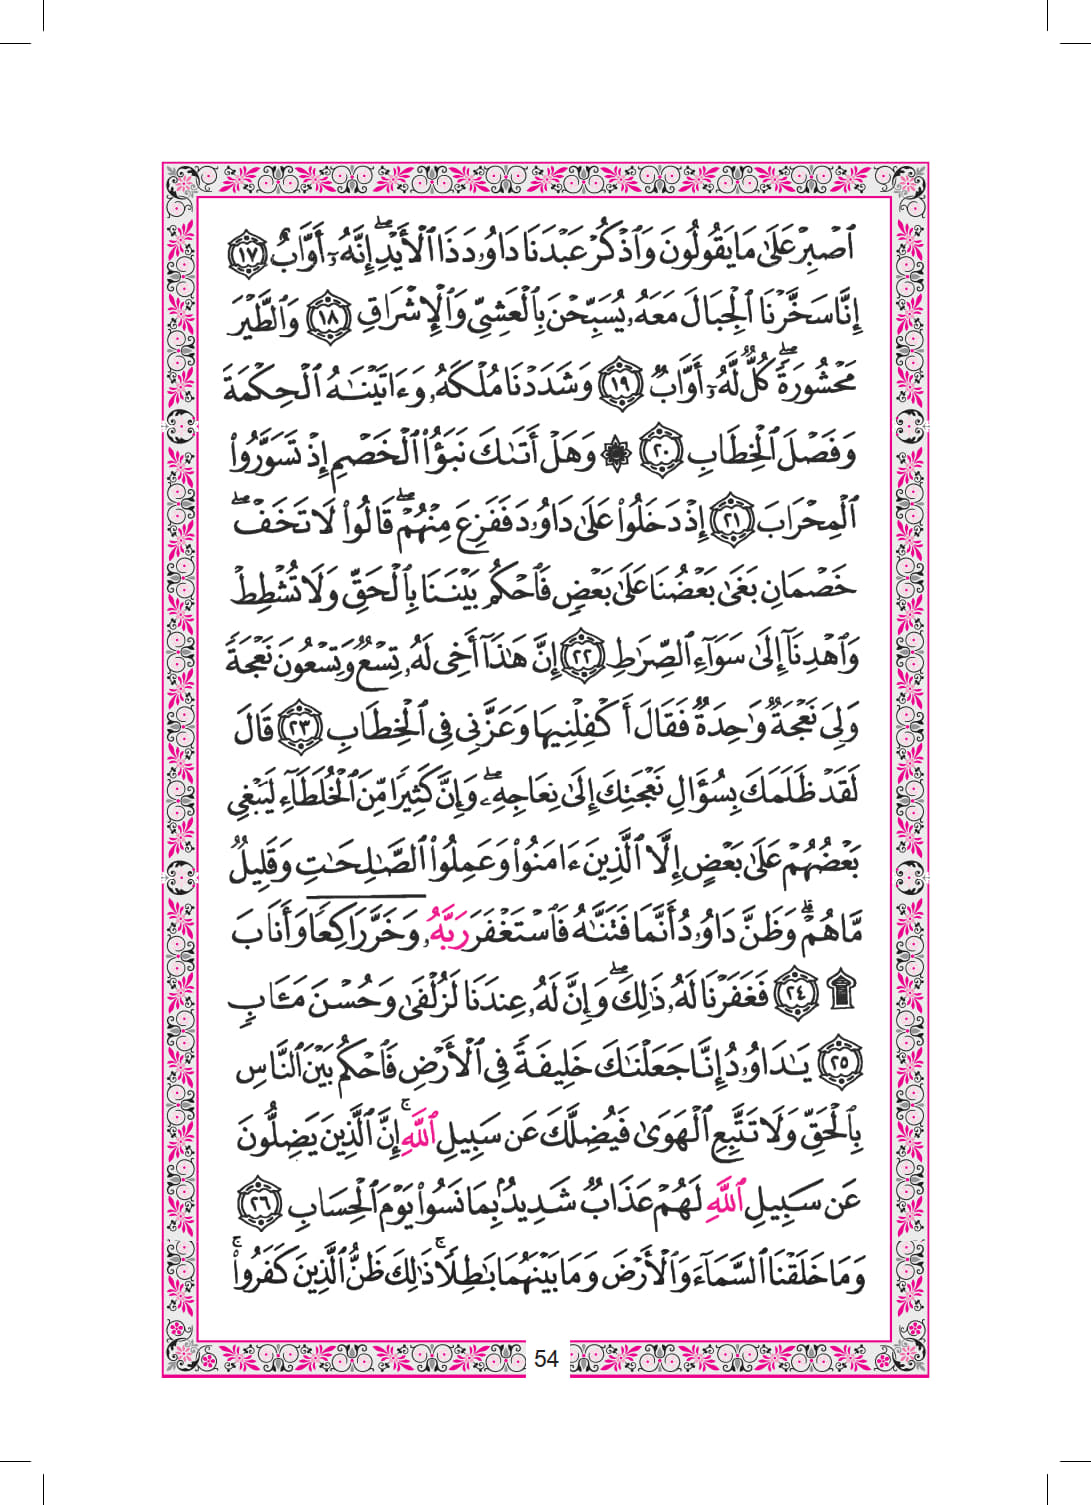 ٱصۡبِرۡ عَلَىٰ مَا يَقُولُونَ وَٱذۡكُرۡ عَبۡدَنَا دَاوُۥدَ ذَا ٱلۡأَيۡدِۖ إِنَّهُۥٓ أَوَّابٌ ١٧
إِنَّا سَخَّرۡنَا ٱلۡجِبَالَ مَعَهُۥ يُسَبِّحۡنَ بِٱلۡعَشِيِّ وَٱلۡإِشۡرَاقِ ١٨ وَٱلطَّيۡرَ
مَحۡشُورَةٗۖ كُلّٞ لَّهُۥٓ أَوَّابٞ ١٩ وَشَدَدۡنَا مُلۡكَهُۥ وَءَاتَيۡنَٰهُ ٱلۡحِكۡمَةَ
وَفَصۡلَ ٱلۡخِطَابِ ٢٠ ۞ وَهَلۡ أَتَىٰكَ نَبَؤُاْ ٱلۡخَصۡمِ إِذۡ تَسَوَّرُواْ
ٱلۡمِحۡرَابَ ٢١ إِذۡ دَخَلُواْ عَلَىٰ دَاوُۥدَ فَفَزِعَ مِنۡهُمۡۖ قَالُواْ لَا تَخَفۡۖ
خَصۡمَانِ بَغَىٰ بَعۡضُنَا عَلَىٰ بَعۡضٖ فَٱحۡكُم بَيۡنَنَا بِٱلۡحَقِّ وَلَا تُشۡطِطۡ
وَٱهۡدِنَآ إِلَىٰ سَوَآءِ ٱلصِّرَٰطِ ٢٢ إِنَّ هَٰذَآ أَخِي لَهُۥ تِسۡعٞ وَتِسۡعُونَ نَعۡجَةٗ
وَلِيَ نَعۡجَةٞ وَٰحِدَةٞ فَقَالَ أَكۡفِلۡنِيهَا وَعَزَّنِي فِي ٱلۡخِطَابِ ٢٣ قَالَ
لَقَدۡ ظَلَمَكَ بِسُؤَالِ نَعۡجَتِكَ إِلَىٰ نِعَاجِهِۦۖ وَإِنَّ كَثِيرٗا مِّنَ ٱلۡخُلَطَآءِ لَيَبۡغِي
بَعۡضُهُمۡ عَلَىٰ بَعۡضٍ إِلَّا ٱلَّذِينَ ءَامَنُواْ وَعَمِلُواْ ٱلصَّٰلِحَٰتِ وَقَلِيلٞ
مَّا هُمۡۗ وَظَنَّ دَاوُۥدُ أَنَّمَا فَتَنَّٰهُ فَٱسۡتَغۡفَرَ رَبَّهُۥ وَخَرَّۤ رَاكِعٗاۤ وَأَنَابَ
۩ ٢٤ فَغَفَرۡنَا لَهُۥ ذَٰلِكَۖ وَإِنَّ لَهُۥ عِندَنَا لَزُلۡفَىٰ وَحُسۡنَ مَـَٔابٖ
٢٥ يَٰدَاوُۥدُ إِنَّا جَعَلۡنَٰكَ خَلِيفَةٗ فِي ٱلۡأَرۡضِ فَٱحۡكُم بَيۡنَ ٱلنَّاسِ
بِٱلۡحَقِّ وَلَا تَتَّبِعِ ٱلۡهَوَىٰ فَيُضِلَّكَ عَن سَبِيلِ ٱللَّهِۚ إِنَّ ٱلَّذِينَ يَضِلُّونَ
عَن سَبِيلِ ٱللَّهِ لَهُمۡ عَذَابٞ شَدِيدُۢ بِمَا نَسُواْ يَوۡمَ ٱلۡحِسَابِ ٢٦
وَمَا خَلَقۡنَا ٱلسَّمَآءَ وَٱلۡأَرۡضَ وَمَا بَيۡنَهُمَا بَٰطِلٗاۚ ذَٰلِكَ ظَنُّ ٱلَّذِينَ كَفَرُواْۚ
54